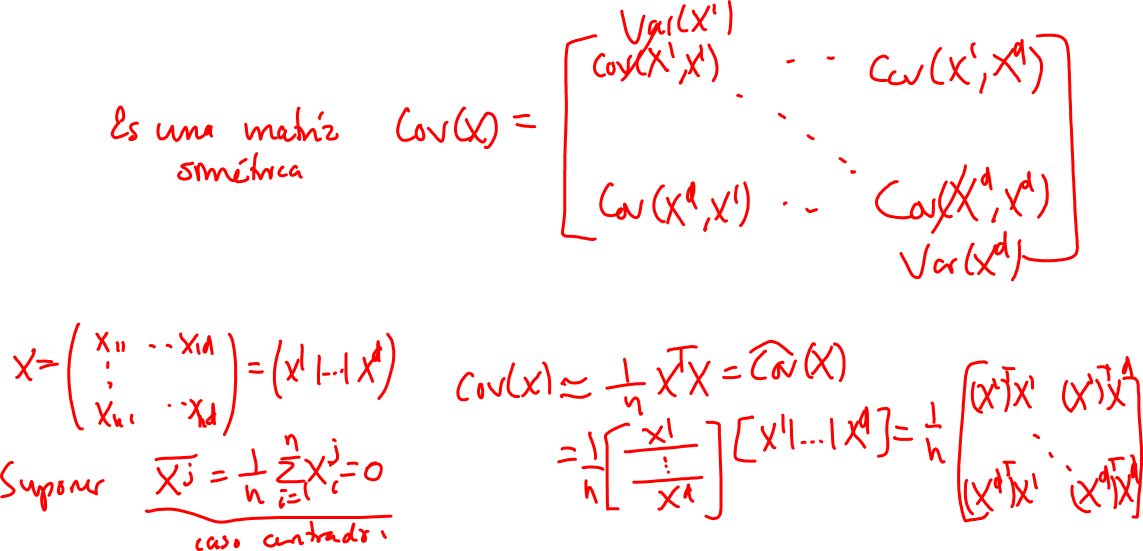 Es una matriz simétrica Cov(X) = [ Var(X¹) Cov(X¹,X¹) ·· Cov(X¹,X^d)
⋱
Cov(X^d,X¹) ·· Cov(X^d,X^d) Var(X^d) ]
X = ( x₁₁ ·· x₁d ⋮ xₙ₁ ·· xₙd ) = (X¹ |...| X^d)
Suponer X̄^j = 1/n Σ_{i=1}^n X_i^j = 0
caso centrado
Cov(X) ≃ 1/n X^T X = Ĉov(X)
= 1/n [ X¹ ⋮ X^d ] [X¹|...|X^d] = 1/n [ (X¹)^T X¹ (X¹)^T X^d ⋱ (X^d)^T X¹ (X^d)^T X^d ]